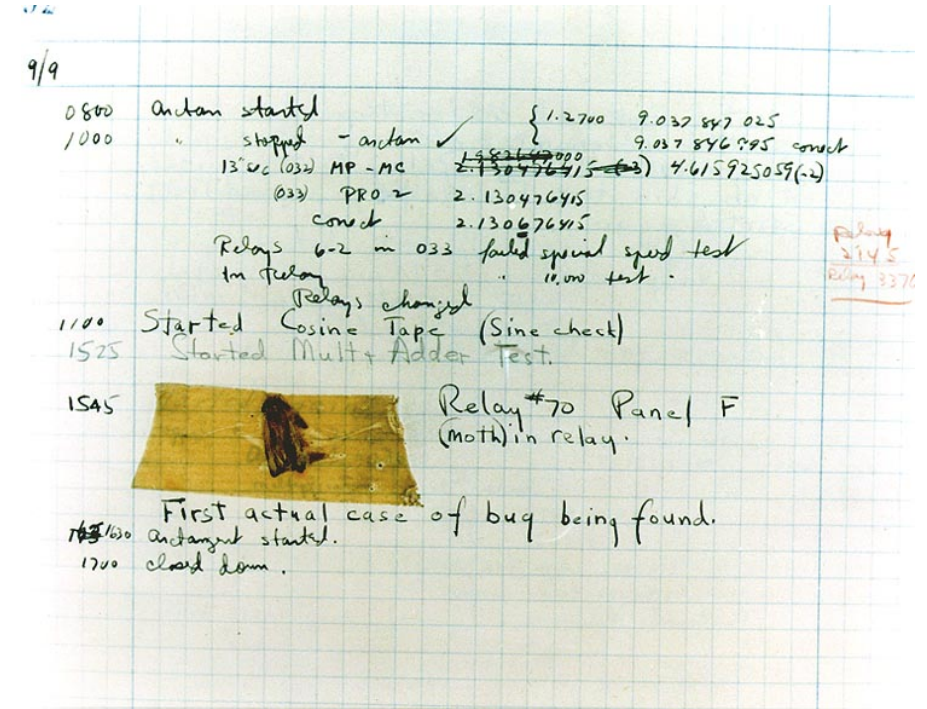 9/9
0800 Antan started { 1.2700 9.037 847 025
1000 " stopped - antan ✓ 9.037 846 995 conect
13"uc (032) MP - MC 2.130476415 (-3) 4.615925059(-2)
(033) PRO 2 2.130476415
conect 2.130676415
Relays 6-2 in 033 failed special speed test
In Relay " 10.000 test .
Relays changed
Relay
3370
1100 Started Cosine Tape (Sine check)
1525 Started Mult + Adder Test.
1545 Relay #70 Panel F
(moth) in relay.
First actual case of bug being found.
1630 antangent started.
1700 closed down.